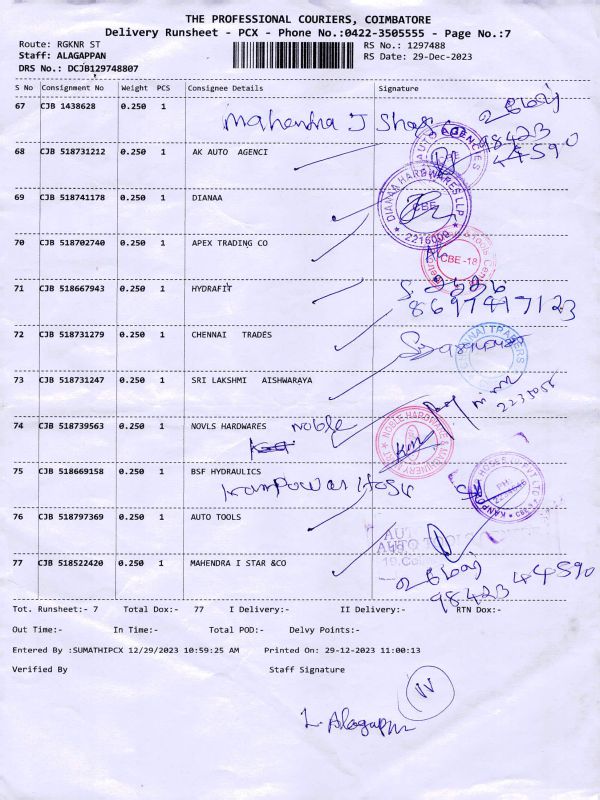 THE PROFESSIONAL COURIERS, COIMBATORE
Delivery Runsheet - PCX - Phone No.:0422-3505555 - Page No.:7
Route: RGKNR ST
RS No.: 1297488
Staff: ALAGAPPAN
RS Date: 29-Dec-2023
DRS No.: DCJB129748807
S No Consignment No Weight PCS Consignee Details Signature
67 CJB 1438628 0.250 1
Mahendra J
98423
44590
68 CJB 518731212 0.250 1 AK AUTO AGENCI
AUTO AGENCIES
69 CJB 518741178 0.250 1 DIANAA
DIANAA HARDWARES LLP
CBE
2216000
70 CJB 518702740 0.250 1 APEX TRADING CO
CBE -18
71 CJB 518667943 0.250 1 HYDRAFIT
8697497123
72 CJB 518731279 0.250 1 CHENNAI TRADES
73 CJB 518731247 0.250 1 SRI LAKSHMI AISHWARAYA
74 CJB 518739563 0.250 1 NOVLS HARDWARES Noble
NOBLE HARDWARE MACHINERY MART
75 CJB 518669158 0.250 1 BSF HYDRAULICS
Kanpowar Hose
76 CJB 518797369 0.250 1 AUTO TOOLS
77 CJB 518522420 0.250 1 MAHENDRA I STAR &CO
98423 44590
Tot. Runsheet:- 7 Total Dox:- 77 I Delivery:- II Delivery:- RTN Dox:-
Out Time:- In Time:- Total POD:- Delvy Points:-
Entered By :SUMATHIPCX 12/29/2023 10:59:25 AM Printed On: 29-12-2023 11:00:13
Verified By Staff Signature
L. Alagappan